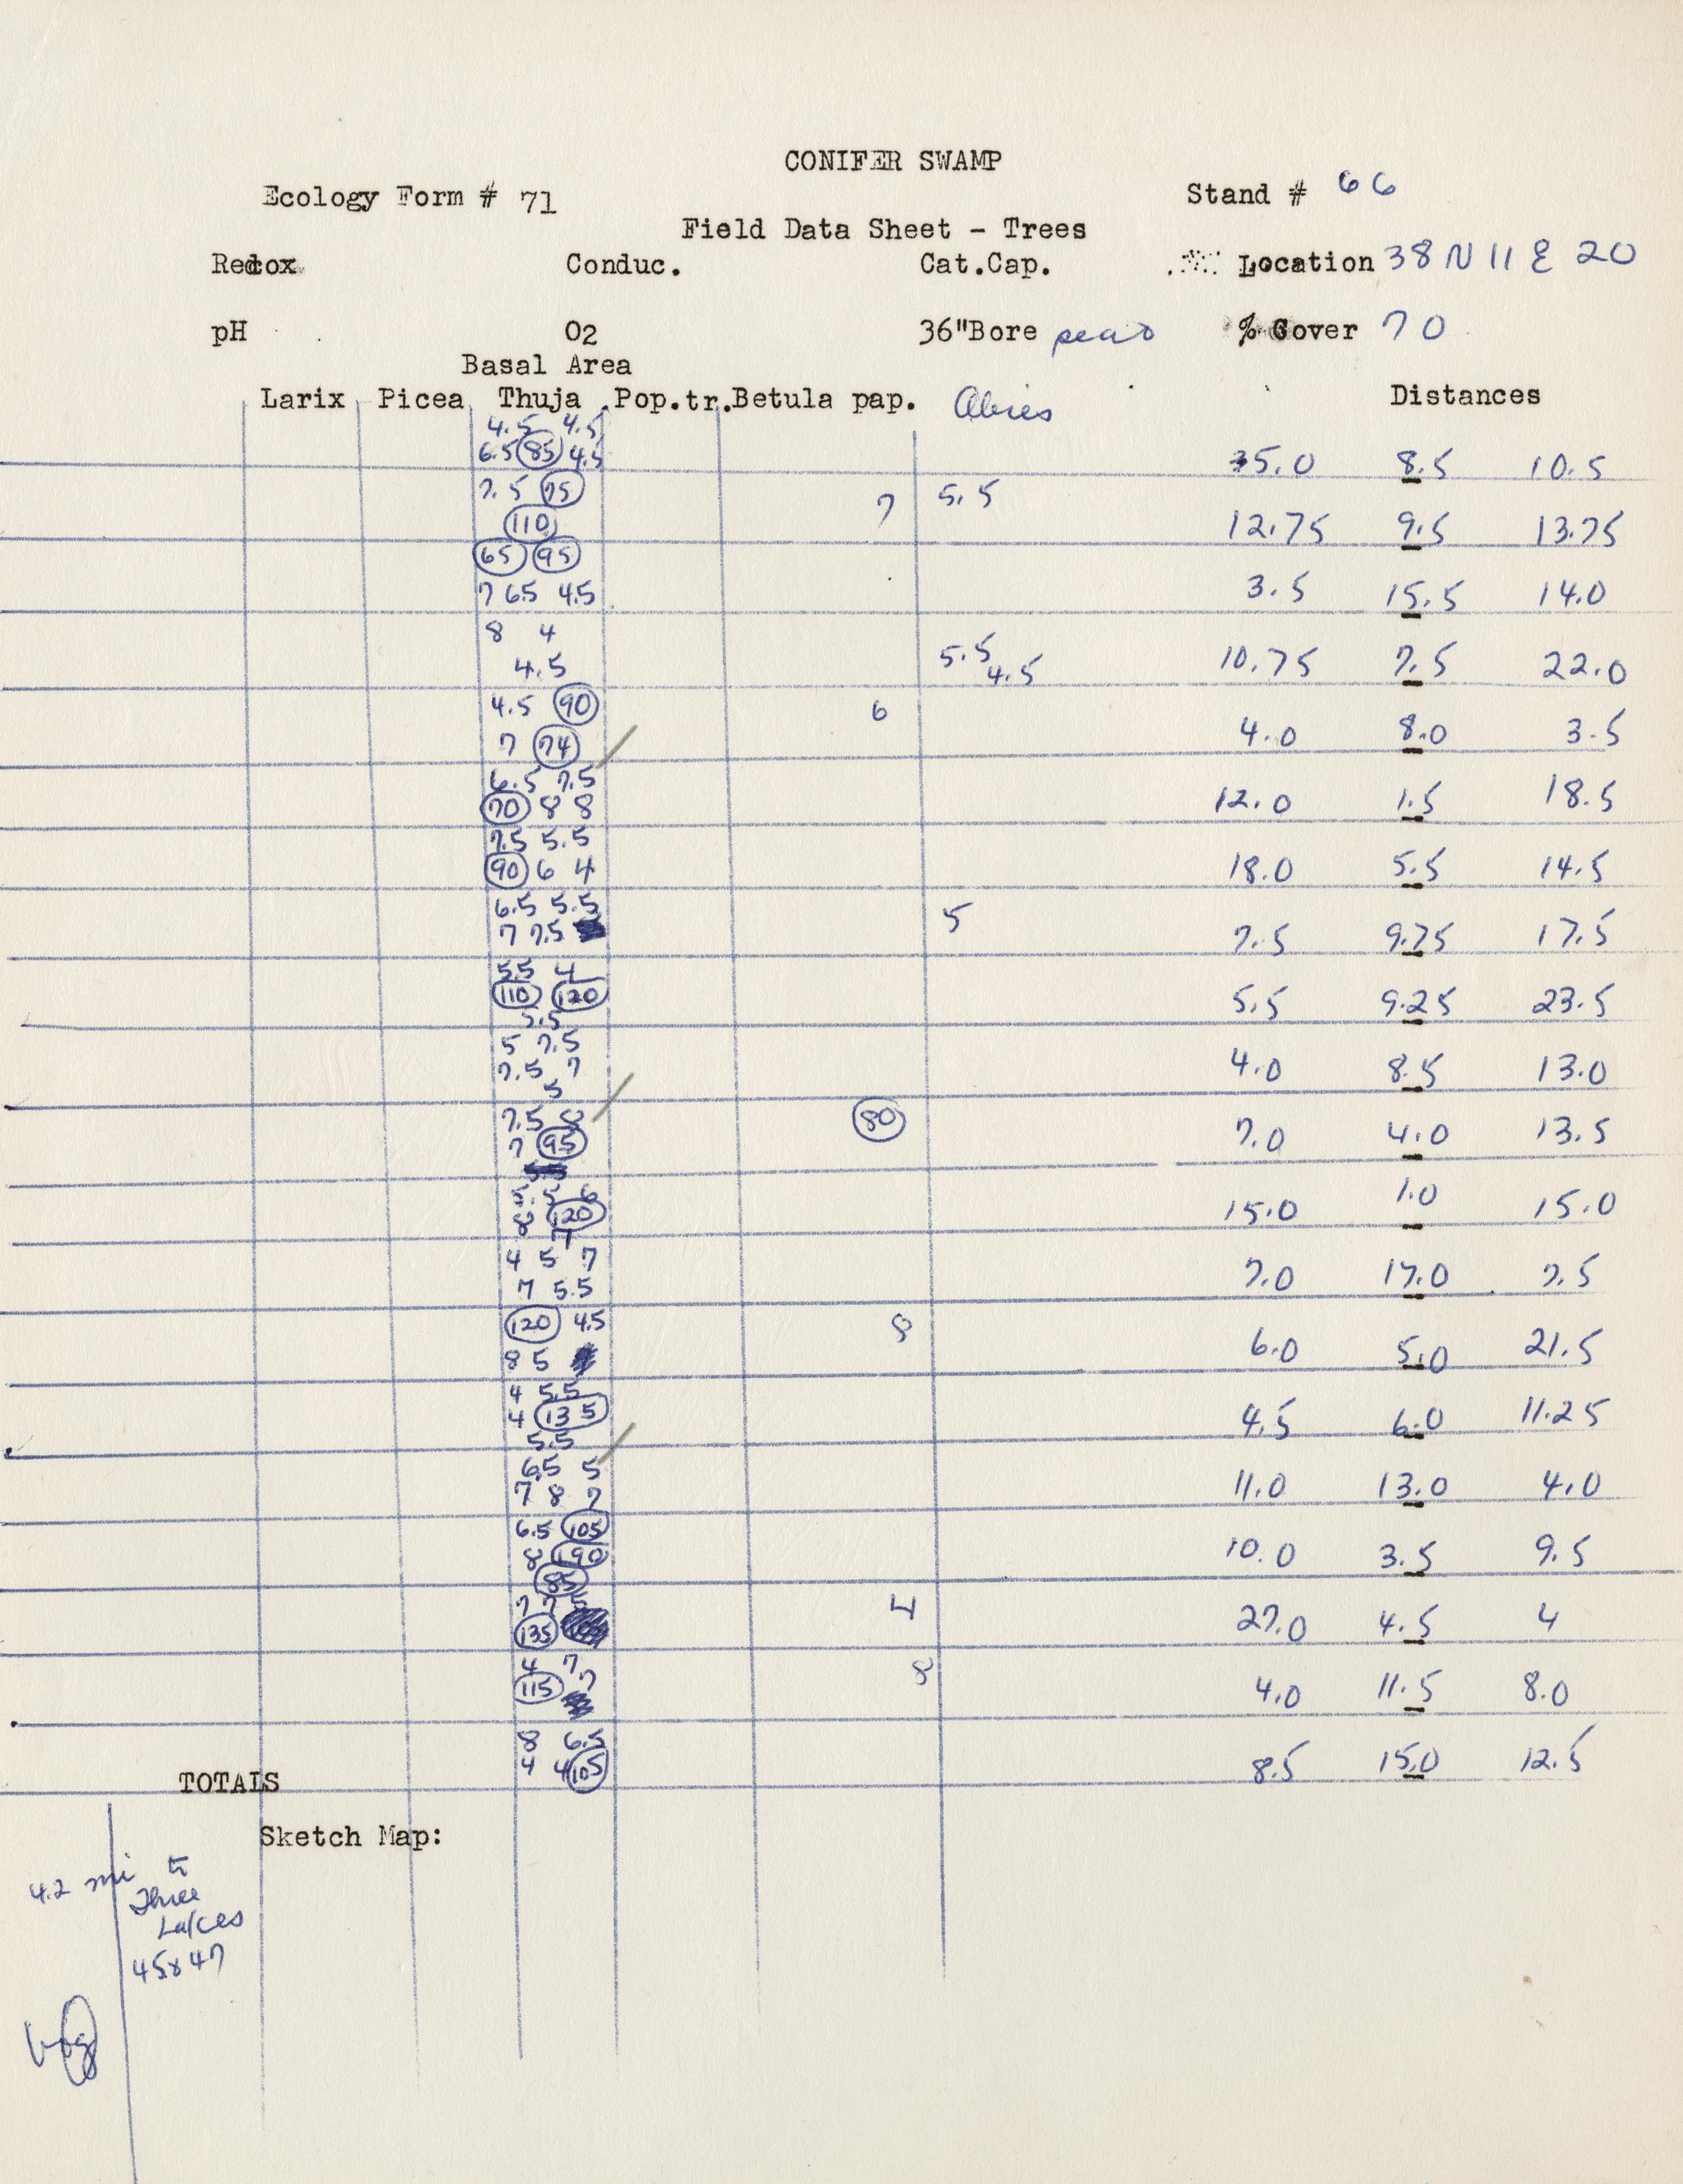 CONIFER SWAMP
Ecology Form # 71 Stand # 66
Field Data Sheet - Trees
Redox Conduc. Cat.Cap. Location 38 N 11 E 20
pH O2 36"Bore peat % Cover 70
Basal Area
Larix Picea Thuja Pop.tr. Betula pap. Abies Distances
4.5 4.5
6.5 85 4.5 35.0 8.5 10.5
7.5 75 7 5.5
110 12.75 9.5 13.75
65 95
7 65 4.5 3.5 15.5 14.0
8 4
4.5 5.5 4.5 10.75 7.5 22.0
4.5 90 6
7 74 4.0 8.0 3.5
6.5 7.5
70 8 8 12.0 1.5 18.5
7.5 5.5
90 6 4 18.0 5.5 14.5
6.5 5.5 5
7 7.5 7.5 9.75 17.5
5.5 4
110 120 5.5 9.25 23.5
5.5
5 7.5
7.5 7 4.0 8.5 13.0
5
7.5 8 80
7 95 7.0 4.0 13.5
5.5 6
8 120 15.0 1.0 15.0
7
4 5 7
7 5.5 7.0 17.0 7.5
120 4.5 8
8 5 6.0 5.0 21.5
4 5.5
4 135 4.5 6.0 11.25
5.5
6.5 5
7 8 7 11.0 13.0 4.0
6.5 105
8 190 10.0 3.5 9.5
85
7 7 5 4
135 27.0 4.5 4
4 7 8
115 7 4.0 11.5 8.0
8 6.5
4 4 105 8.5 15.0 12.5
TOTALS
Sketch Map:
4.2 mi to
Three
Lakes
45 & 47